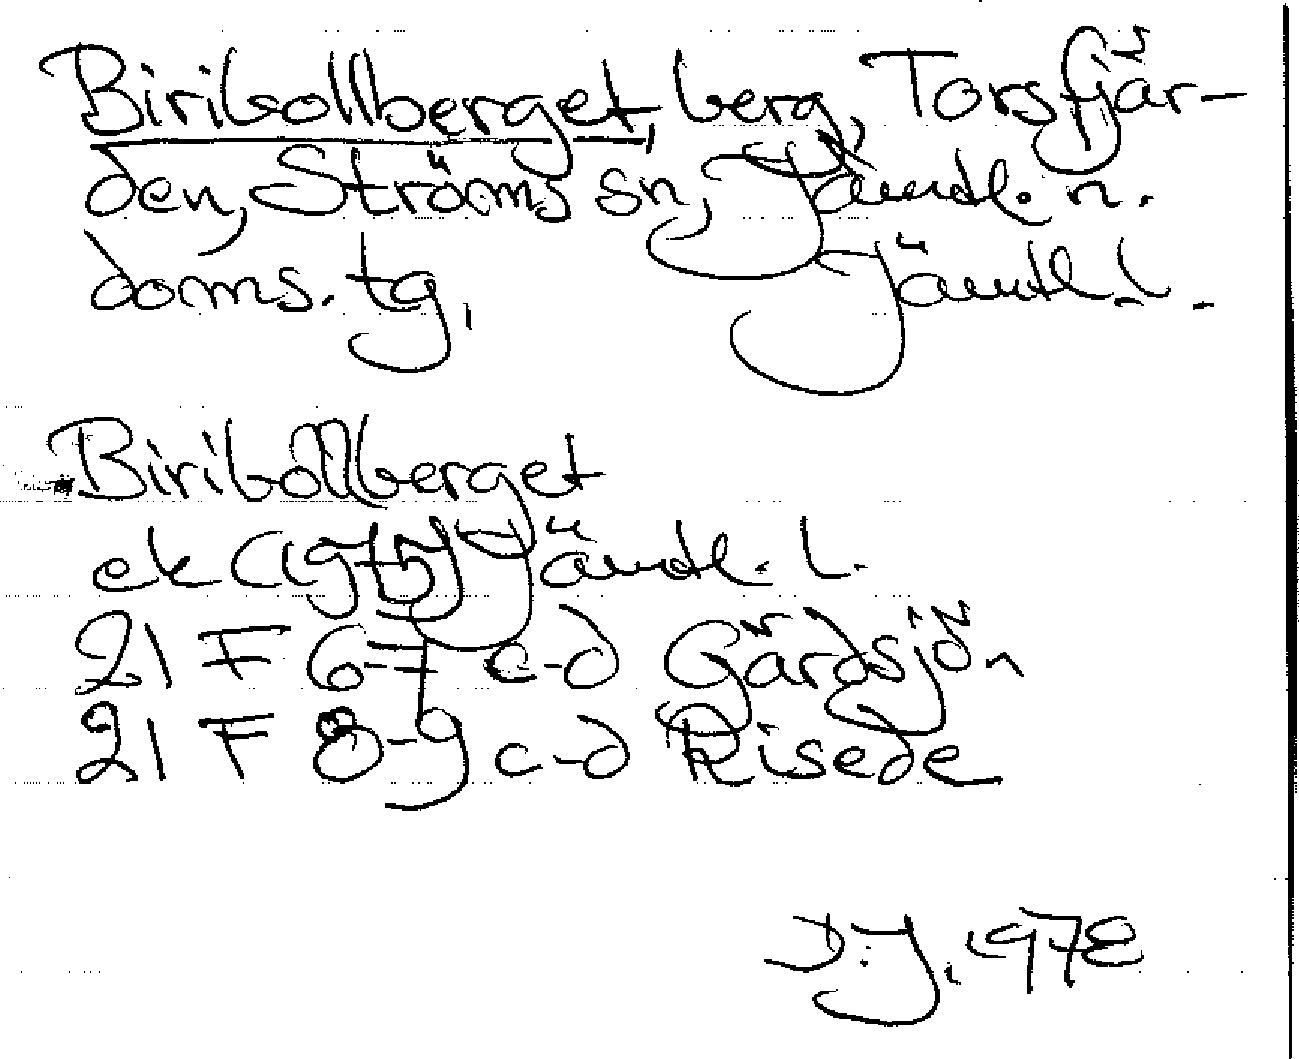 Biribollberget, berg, Torsfjär-
den, Ströms sn, Jämtl. n.
doms. tg, Jämtl. l.
Biribollberget
ek (1957) Jämtl. l.
21 F 6-7 c-d Gärdsjön
21 F 8-9 c-d Risede
D.J. 1978